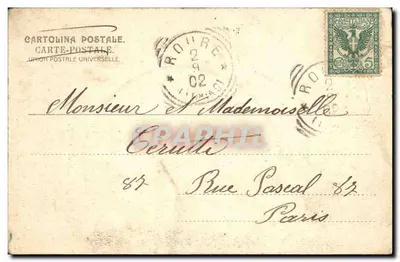 CARTOLINA POSTALE.
CARTE-POSTALE.
UNION POSTALE UNIVERSELLE.
ROURE
2
9
02
Monsieur et Mademoiselle
Cerutti
87 Rue Pascal 87
Paris